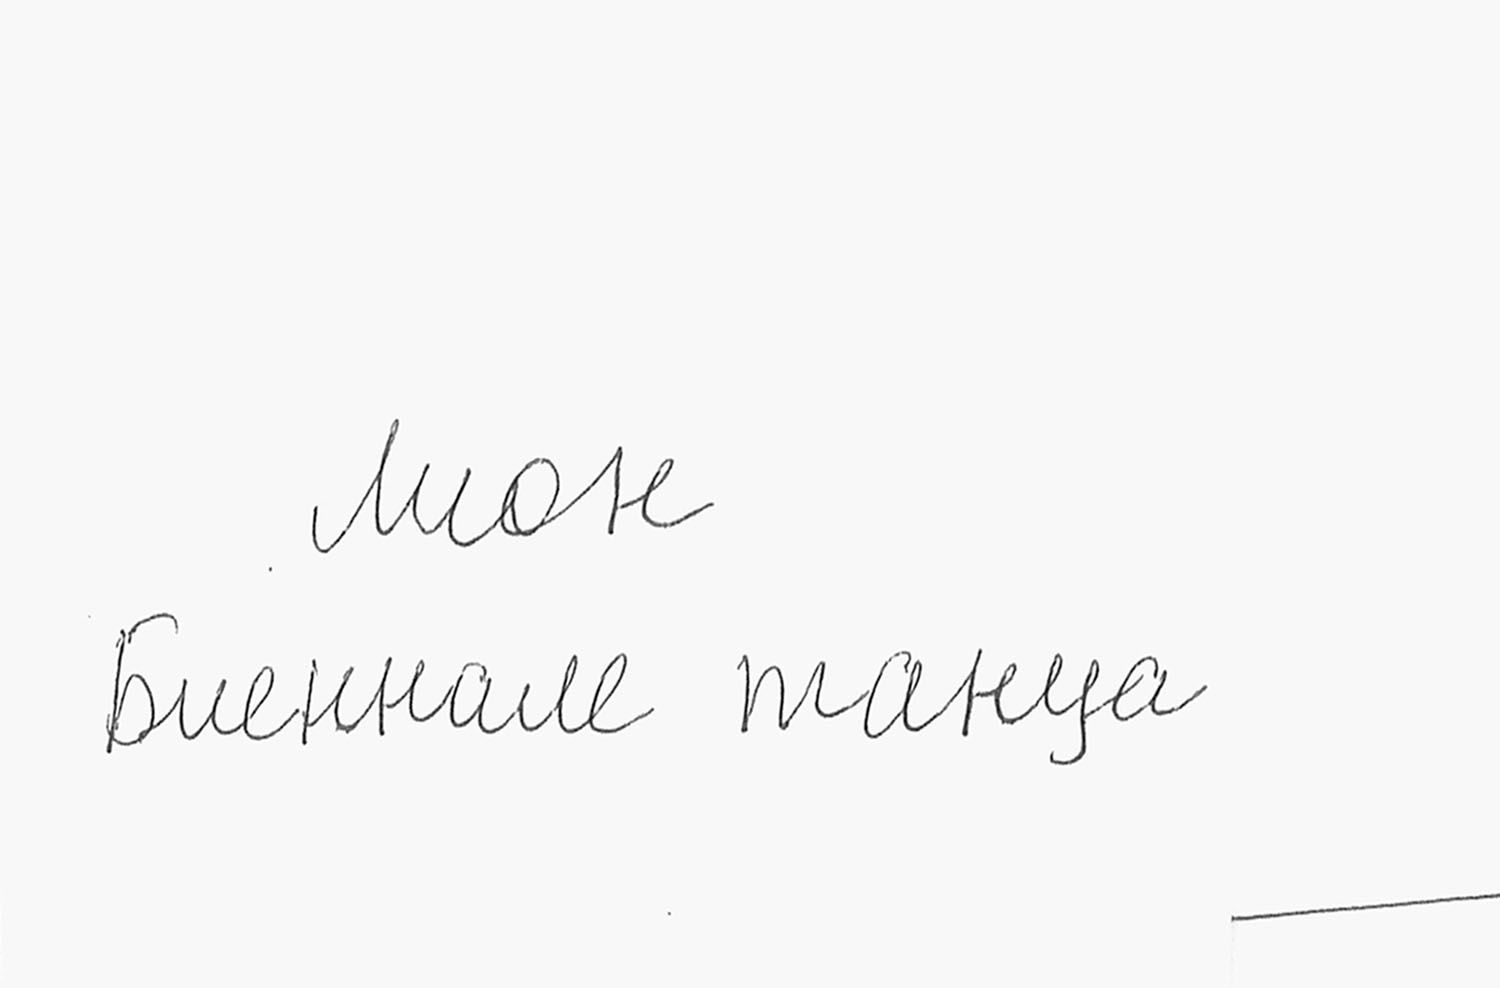 Лион
Биеннале танца